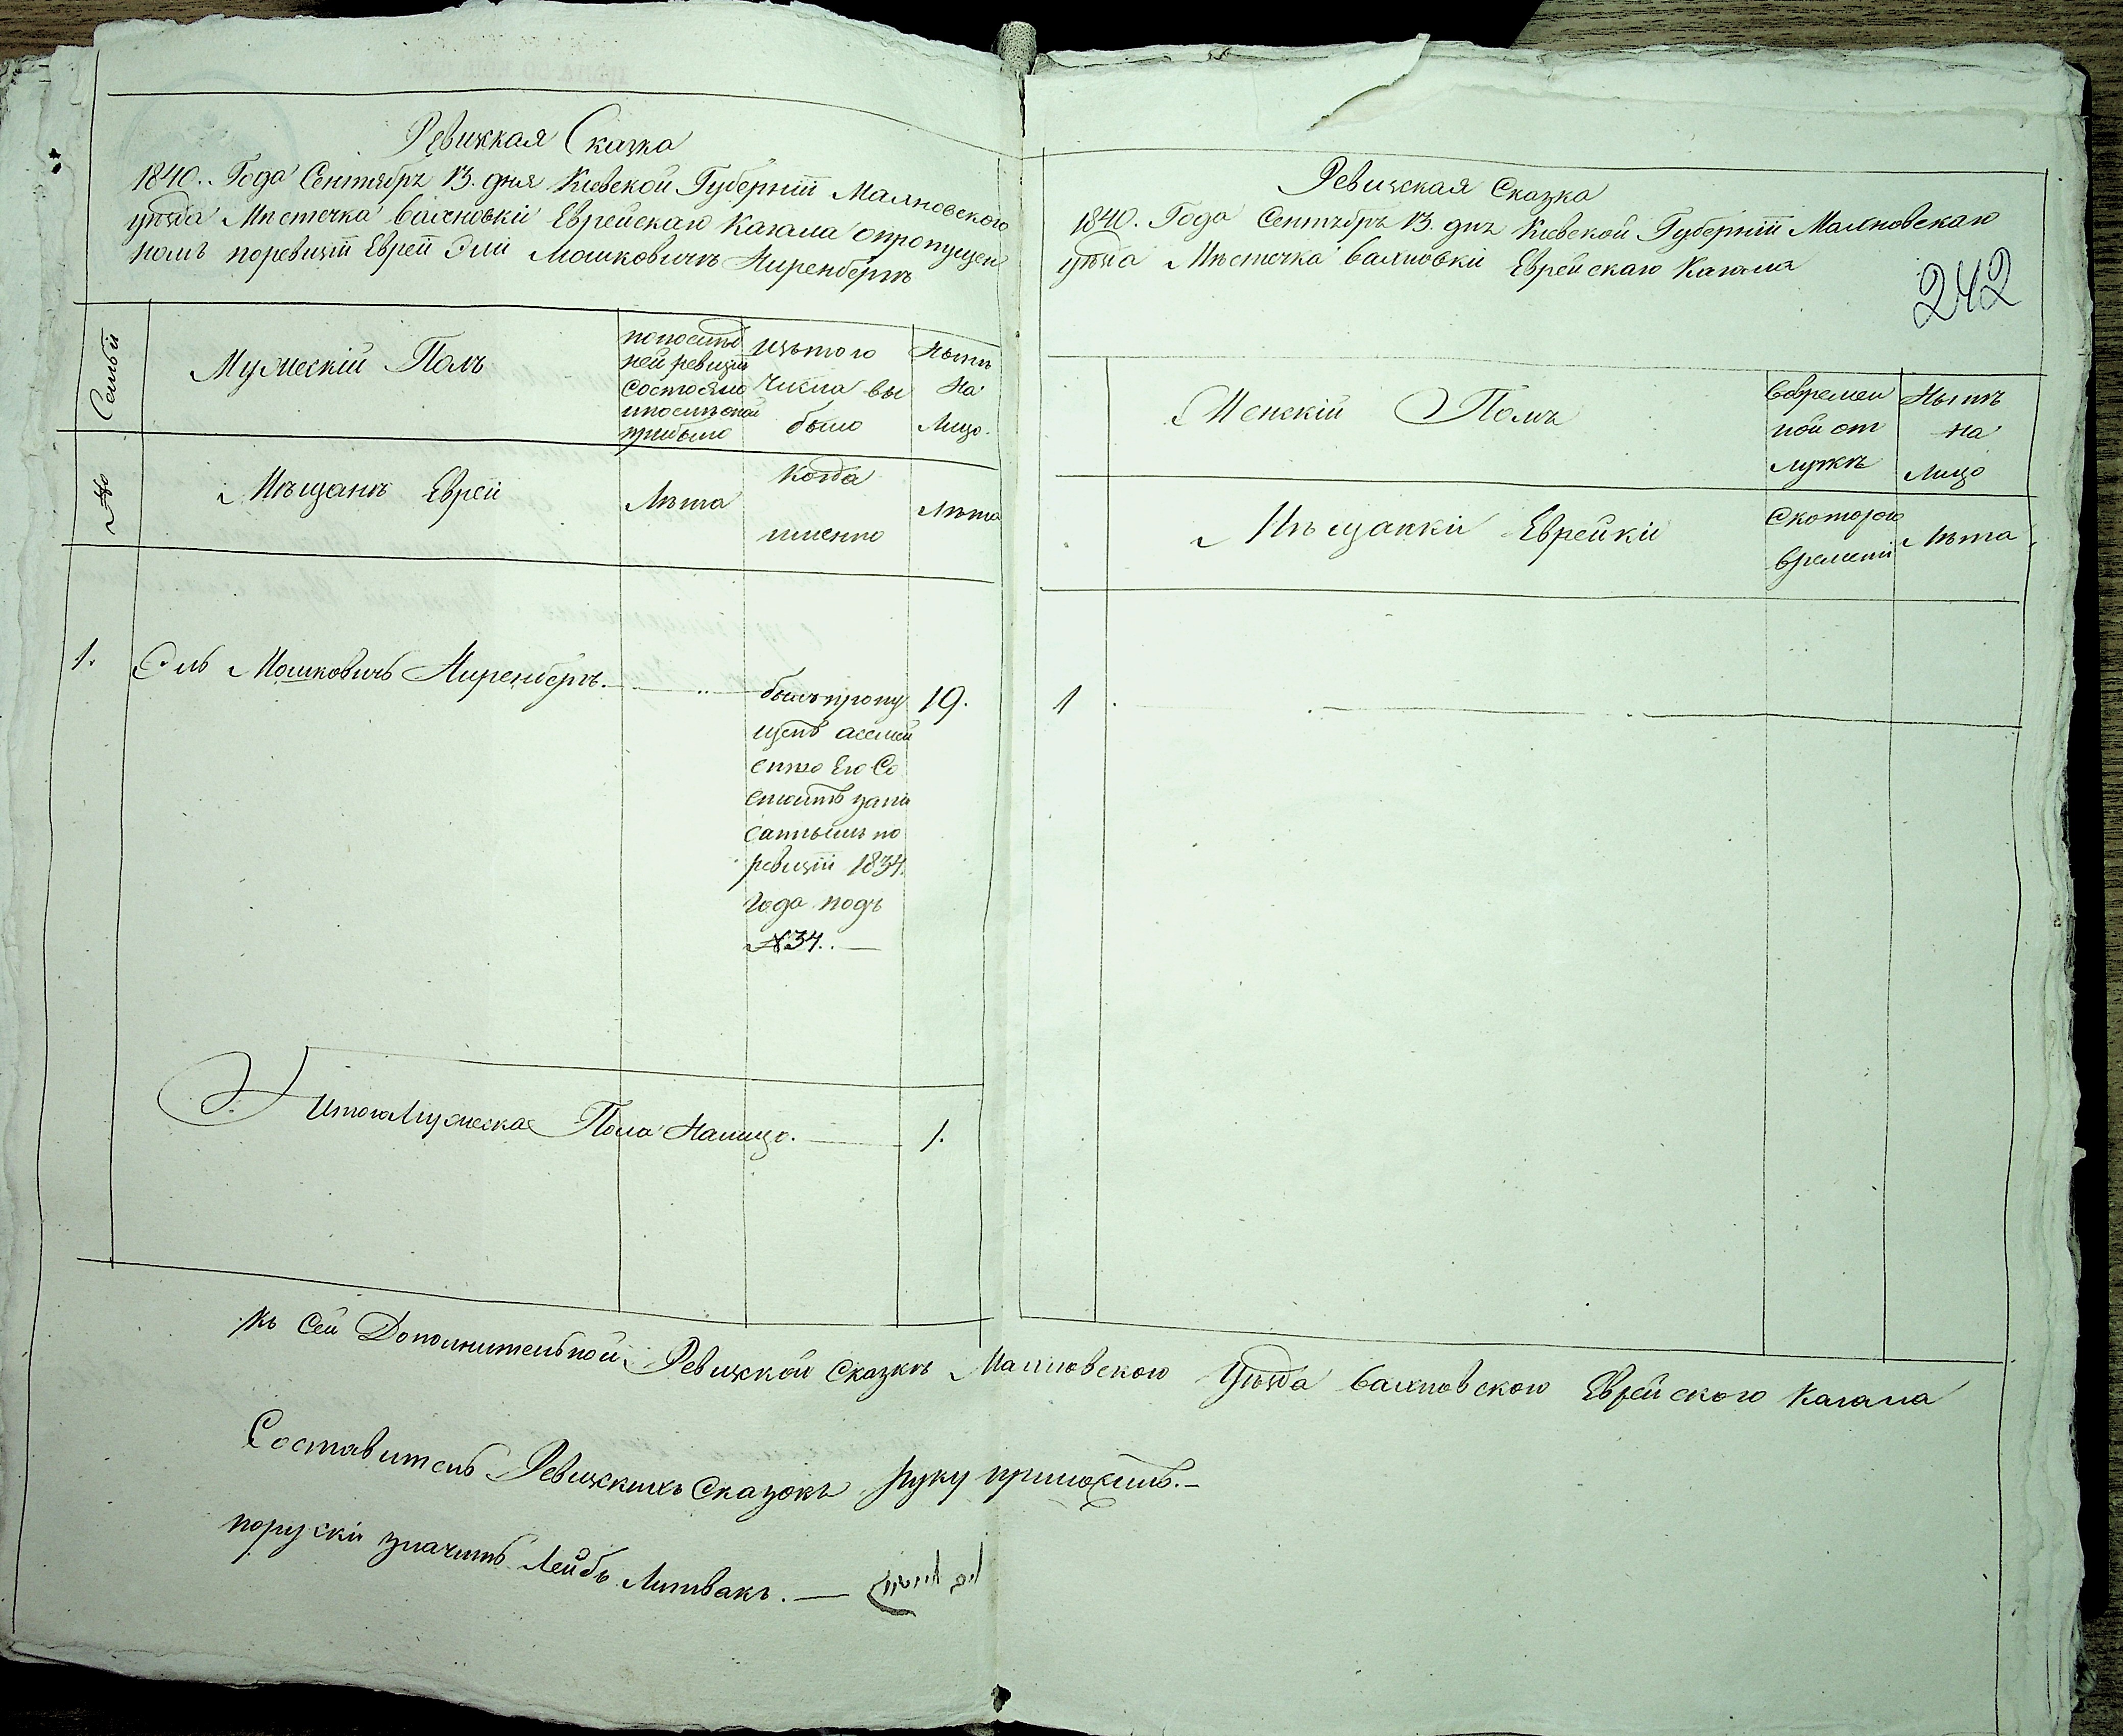 Ревижкая Сказка
1840. Года Сентября 13. дня Киевской Губернiи Махновского
уѣзда Мѣстечка Вахновки Еврейскаго Кагала опропущен
номъ поревизiи Евреи Эли Мошковичѣ Ниренбергѣ
Семьи
Мужескiй Полъ
попослѣд
ней ревизiи
состояло
ипослѣоной
прибыло
Изътого
числа вы
было
Нынѣ
На
Лицо.
№
Мѣщанѣ Еврей
Лѣта
когда
именно
Лѣта
1. Эль Мошковичь Ниренбергъ.
былъ пропу
щенъ асемей
ство Его Со
стоитъ запи
саннымъ по
ревизiи 1834.
года подъ
№34.
19.
Итого Мужеска Пола Налицо. 1.
Ревизская Сказка
1840. Года Сентября 13. дня Киевской Губернiи Махновскаго
уѣзда Мѣстечка Вахновки Еврейскаго Кагала
242
Женскiй Полъ
Вовремен
ной от
лучкѣ
Нынѣ
на
Лицо
Мѣщанки Еврейки
Скоторого
времени
Лѣта
1
Къ Сей Дополнительной Ревизкой Сказкѣ Махновского Уѣзда Вахновского Еврейского Кагала
Составитель Ревизскихъ Сказокъ руку приложилъ.
поруски значитъ Лейбъ Литвакъ.